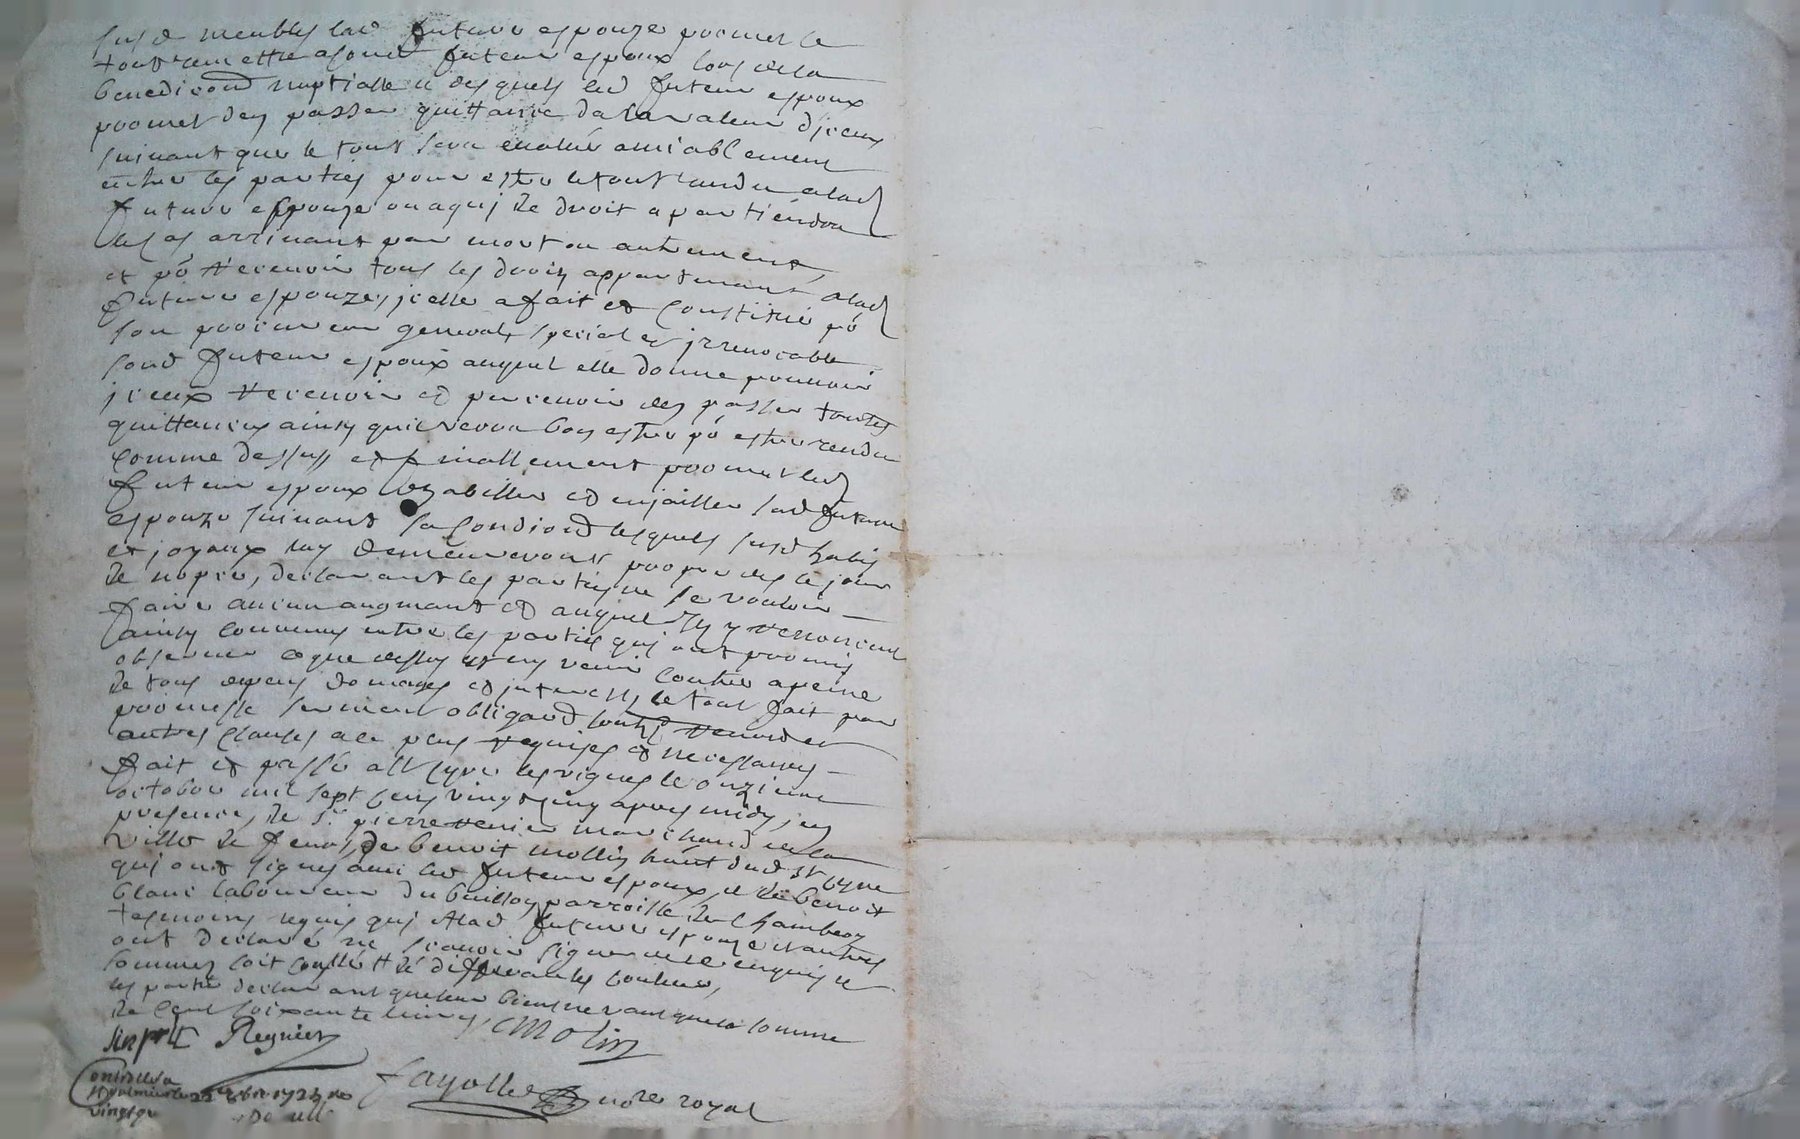 sus de meubles lad future espouze promet le
tout remettre asond futeur espoux lors de la
benediction nuptialle desquels led futeur espoux
promet den passer quittance da la valeur djceux
suivant que le tout sera evalué amiablement
entre les parties pour estre le tout randu alad
future espouze ou aquj de droit apartiendra
le cas arrivant par mort ou autrement,
et pr recevoir tous les droits appartenant alad
future espouze, jcelle a fait et constitué pr
son procureur general, special et jrrevocable
sond futeur espoux auquel elle donne pouvoir
jceux recevoir et percevoir den passer toutes
quittances ainsy quil verra bon estre pr estre rendu
comme dessus et finallement promet led
futeur espoux dhabiller et enjailler lad future
espouze suivant sa condiond lesquels susd habis
et joyaux luy demeureront propre des le jour
de nopce, declarant les parties ne se vouloir
faire aucun augmant et auquel ils y renoncent
ainsy convenu entre les parties quj ont promis
observer ce que dessus et ny venir contre a peine
de tous depens domages et jnterests le tout fait par
promesse serment obligaond
autres clauses a ce plus requises et necessaires
fait et passé a St Cyre les vignes le onzieme
octobre mil sept cens vingt cinq apres midy, en
presence, de Sr pierre marchand de la
ville de feurs, de benoit mollin dud St Cyre
quj ont signes avec led futeur espoux, et de benoit
blanc laboureur du parroisse de Chambeon
tesmoins requis quj et lad future espouze et autres
ont declaré ne scavoir signer de ce enquis et
sommes soit controllé
les partie declarant que leur biens ne vaut que la somme
de cent soixante livres, C Molin
Regnier
Fayolle nore royal
Controlle a
St galmier le 22 8bre 1725 Re
vingt